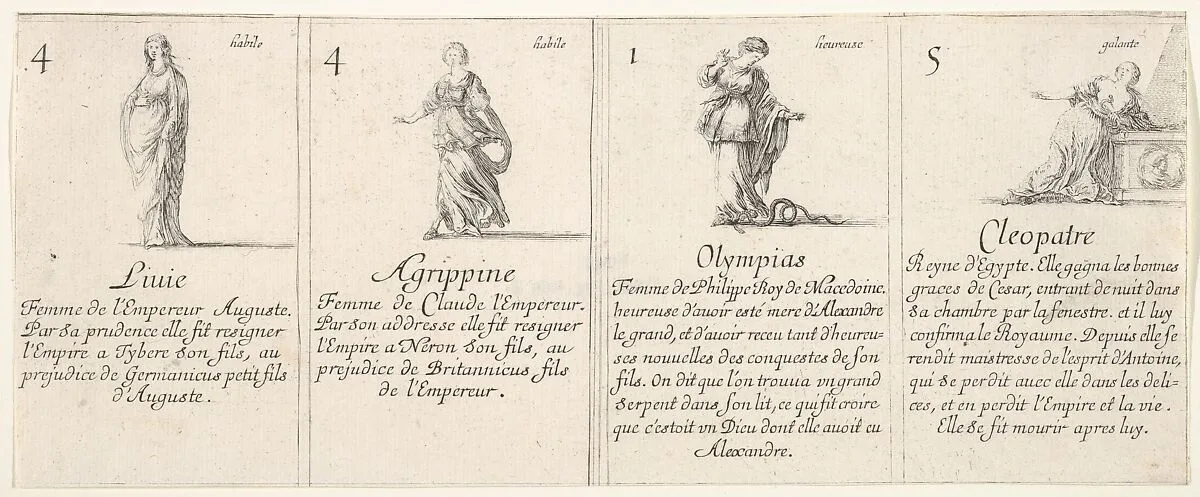 4
habile
Liuie
Femme de l'Empereur Auguste.
Par sa prudence elle fit resigner
l'Empire a Tybere son fils, au
prejudice de Germanicus petit fils
d'Auguste.
4
habile
Agrippine
Femme de Claude l'Empereur.
Par son addresse elle fit resigner
l'Empire a Neron son fils, au
prejudice de Britannicus fils
de l'Empereur.
1
heureuse
Olympias
Femme de Philippe Roy de Macedoine,
heureuse d'auoir esté mere d'Alexandre
le grand, et d'auoir receu tant d'heureu-
ses nouuelles des conquestes de son
fils. On dit que l'on trouua vn grand
serpent dans son lit, ce qui fit croire
que c'estoit vn Dieu dont elle auoit eu
Alexandre.
5
galante
Cleopatre
Reyne d'Egypte. Elle gagna les bonnes
graces de Cesar, entrant de nuit dans
sa chambre par la fenestre. et il luy
confirma le Royaume. Depuis elle se
rendit maistresse de l'esprit d'Antoine,
qui se perdit auec elle dans les deli-
ces, et en perdit l'Empire et la vie.
Elle se fit mourir apres luy.